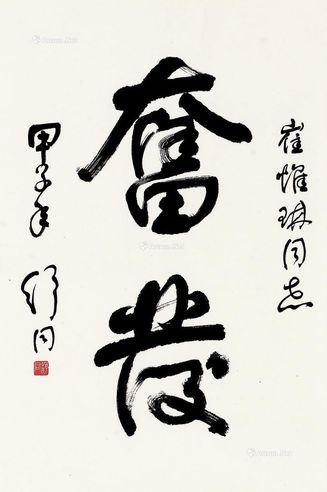 崔惟琳同志
奮發
甲子年
舒同